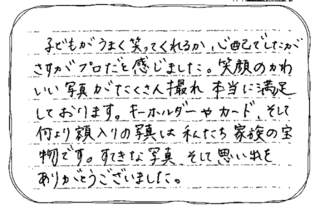 子どもがうまく笑ってくれるか、心配でしたが
さすがプロだと感じました。笑顔のかわ
いい写真がたくさん撮れ 本当に満足
しております。キーホルダーやカード、そして
何より額入りの写真は私たち家族の宝
物です。すてきな写真、そして思い出を
ありがとうございました。